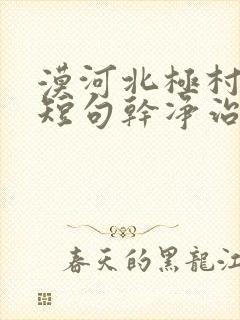 漠河北極村
短句幹净治
春天的黑龍江